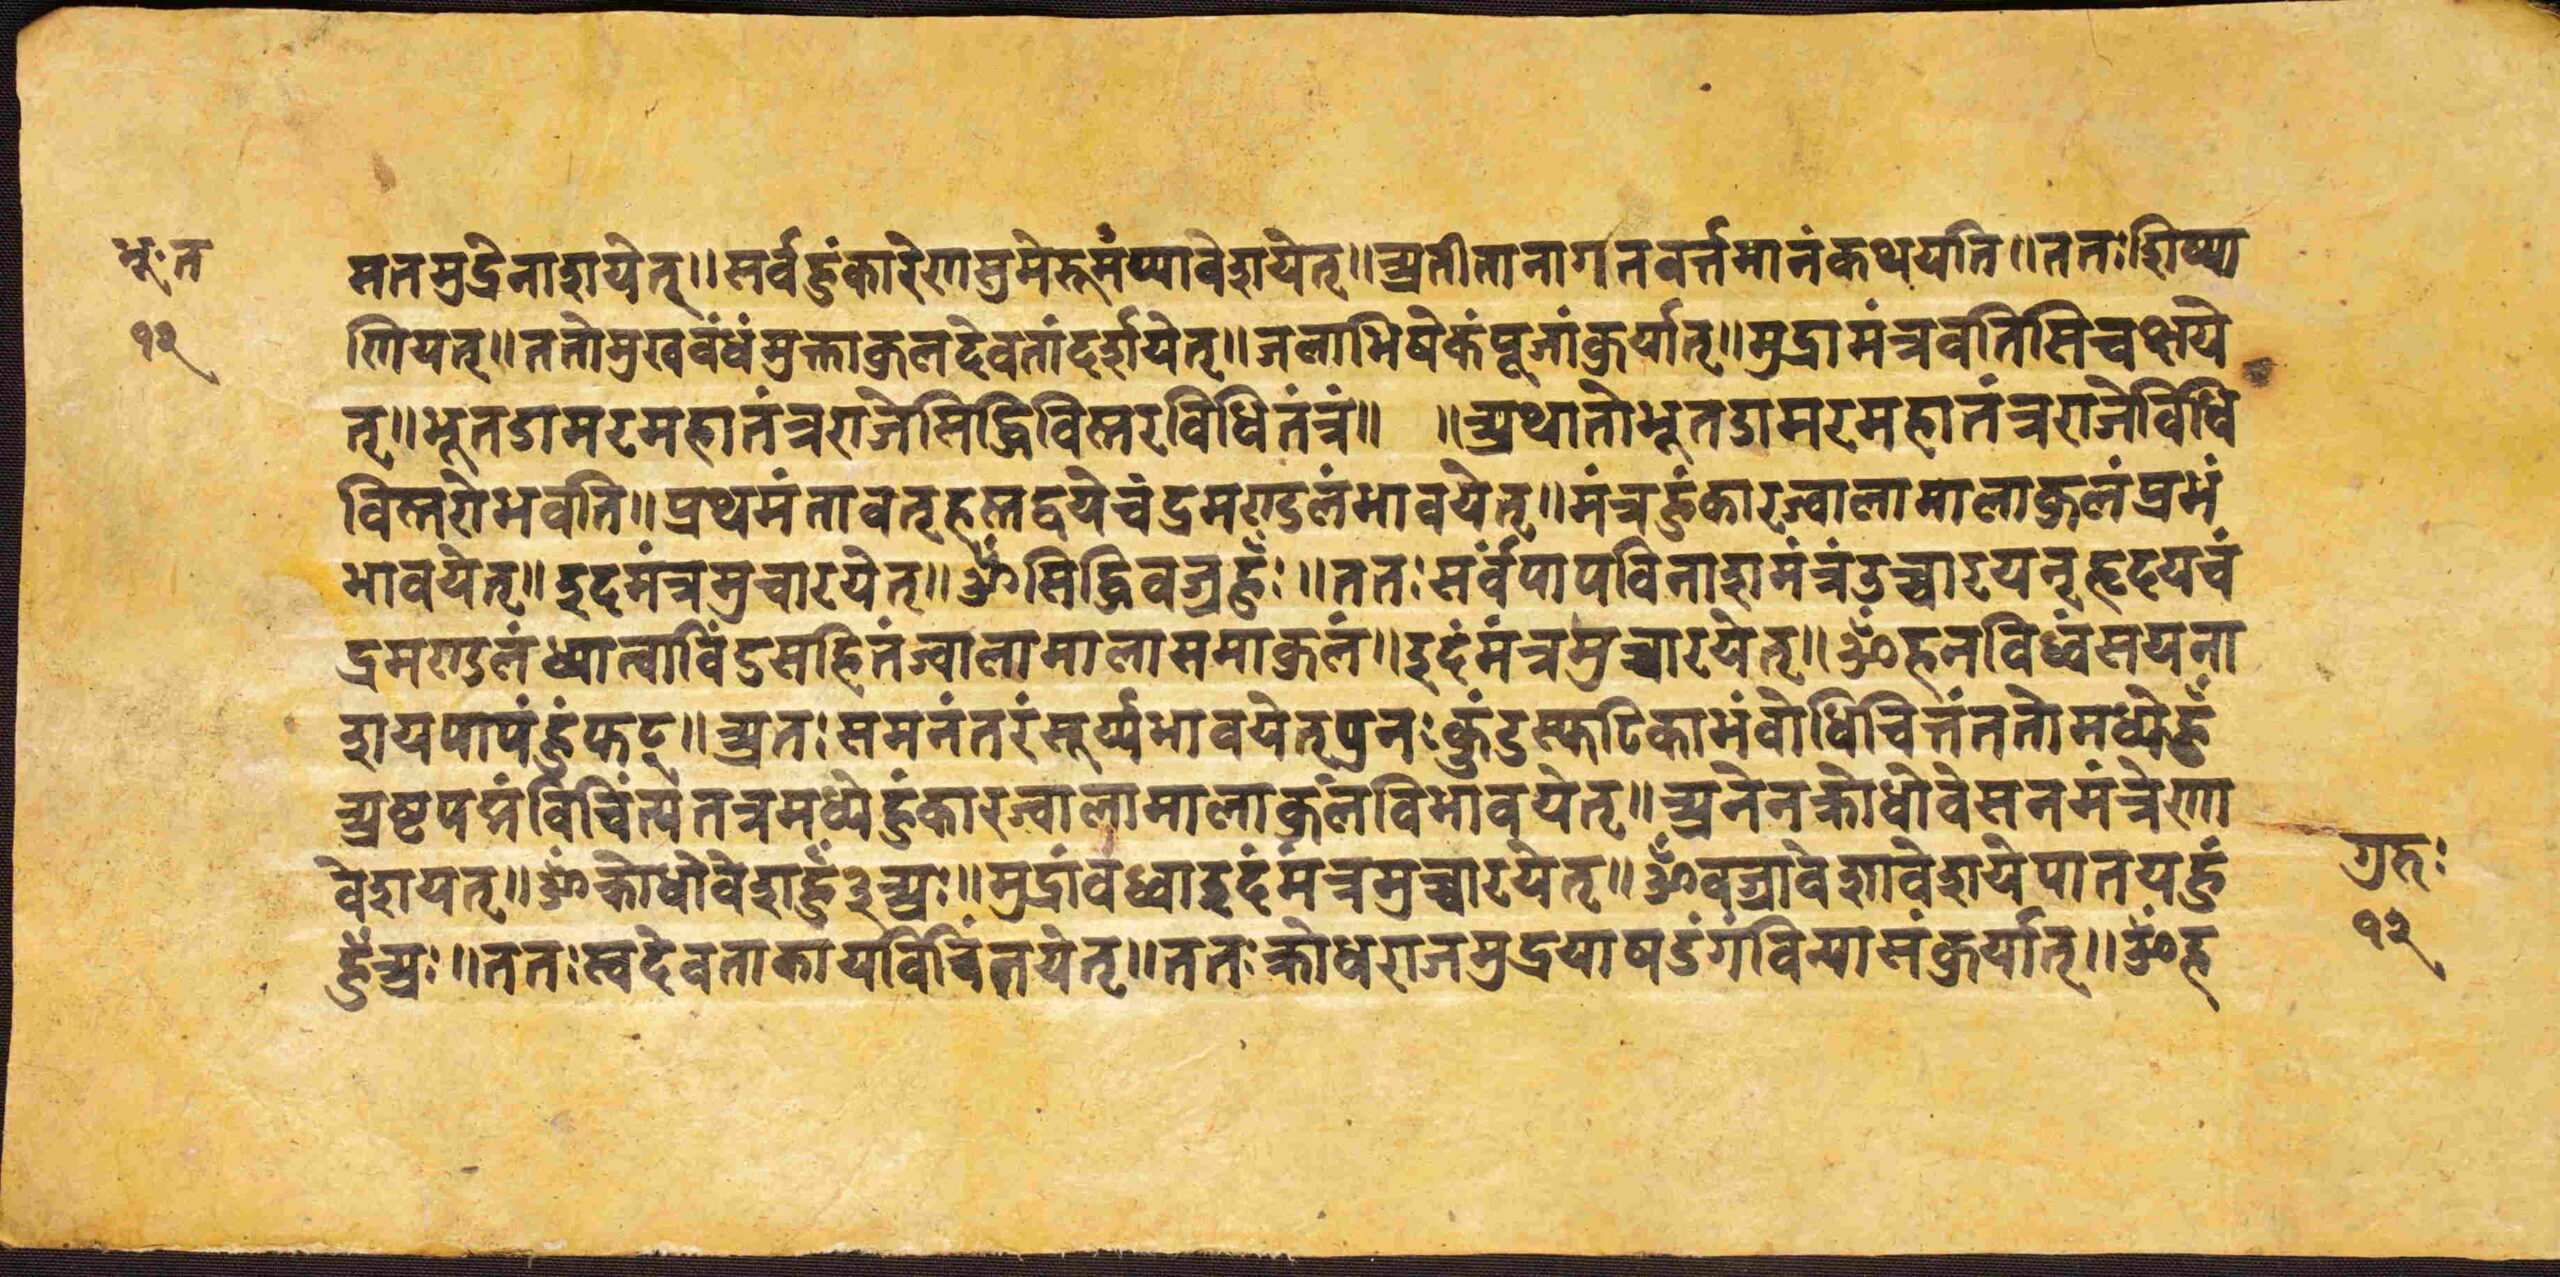 भूः त
१२
मनमुद्रेनाशयेत्॥सर्वहुंकारेणमुमेरूमंप्यावेशयेत्॥अतीतानागतवर्त्तमानंकथयति॥ततःशिष्य
णियत्॥ततोमुखबंधंमुक्ताकुलदेवतांदर्शयेत्॥जलाभिषेकंपूजांकुर्यात्॥मुद्रामंत्रवतिसिचक्षये
त्॥भूतडामरमहातंत्रराजेसिद्धिविस्तरविधितंत्रं॥ ॥अथातोभूतडामरमहातंत्रराजेविधि
विस्तरोभवति॥प्रथमंतावत्हस्तद्वयेचंद्रमण्डलंभावयेत्॥मंत्रहुंकारज्वालामालाकुलंप्रभं
भावयेत्॥इदमंत्रमुचारयेत्॥ॐसिद्धिवज्रहुँः॥ततःसंर्वपापविनाशमंत्रंउच्चारयन्हृदयचं
द्रमण्डलंध्यात्वाविंदुसहितंज्वालामालासमाकुलं॥इदंमंत्रमुच्चारयेत्॥ॐहनविध्वंसयना
शयपापंहुंफट्॥अतःसमनंतरंसूर्य्यभावयेत्पुनःकुंदुस्फटिकाभंवोधिचित्तंततोमध्येहुँ
अष्टपद्मंविचिंत्यतत्रमध्येहुंकारज्वालामालाकुलंविभावयेत्॥अनेनक्रोधोवेसनमंत्रेणा
वेशयत्॥ॐक्रोधोवेशहुँ३अः॥मुद्रांवध्वाइदंमंत्रमुच्चारयेत्॥ॐवज्रावेशावेशयेपातयहुं
हुँअः॥ततःस्वदेवताकायविचिंतयेत्॥ततःक्रोधराजमुद्रयाषडंगंविन्यासंकुर्यात्॥ॐह
ग्रहः
१२